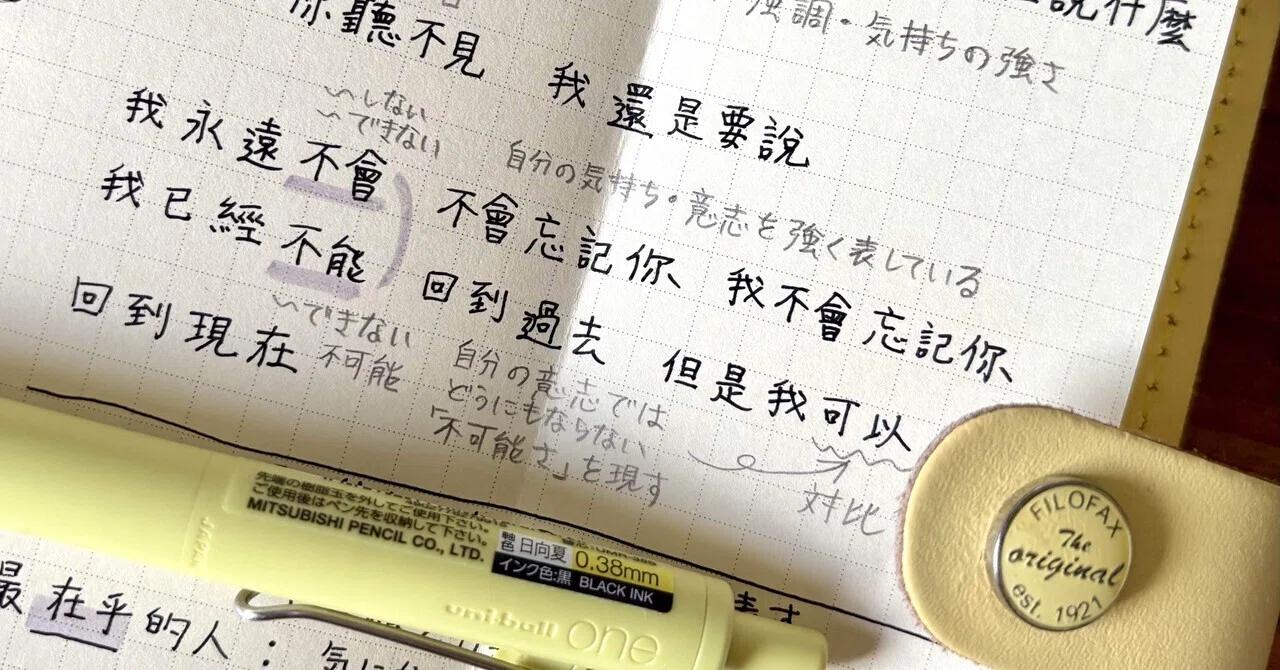 你聽不見 我還是要說
說什麼
強調・気持ちの強さ
〜しない
〜できない
我永遠不會 不會忘記你、我不會忘記你
自分の気持ち・意志を強く表している
我已經不能 回到過去 但是我可以
回到現在
〜できない
不可能
自分の意志では
どうにもならない
「不可能さ」を現す
対比
先端の樹脂玉を外してご使用下さい。
ご使用後はペン先を収納して下さい。
MITSUBISHI PENCIL CO., LTD.
軸色 日向夏 0.38mm
インク色:黒 BLACK INK
uni-ball one
ます
最在乎的人:気に
FILOFAX
The
original
est. 1921